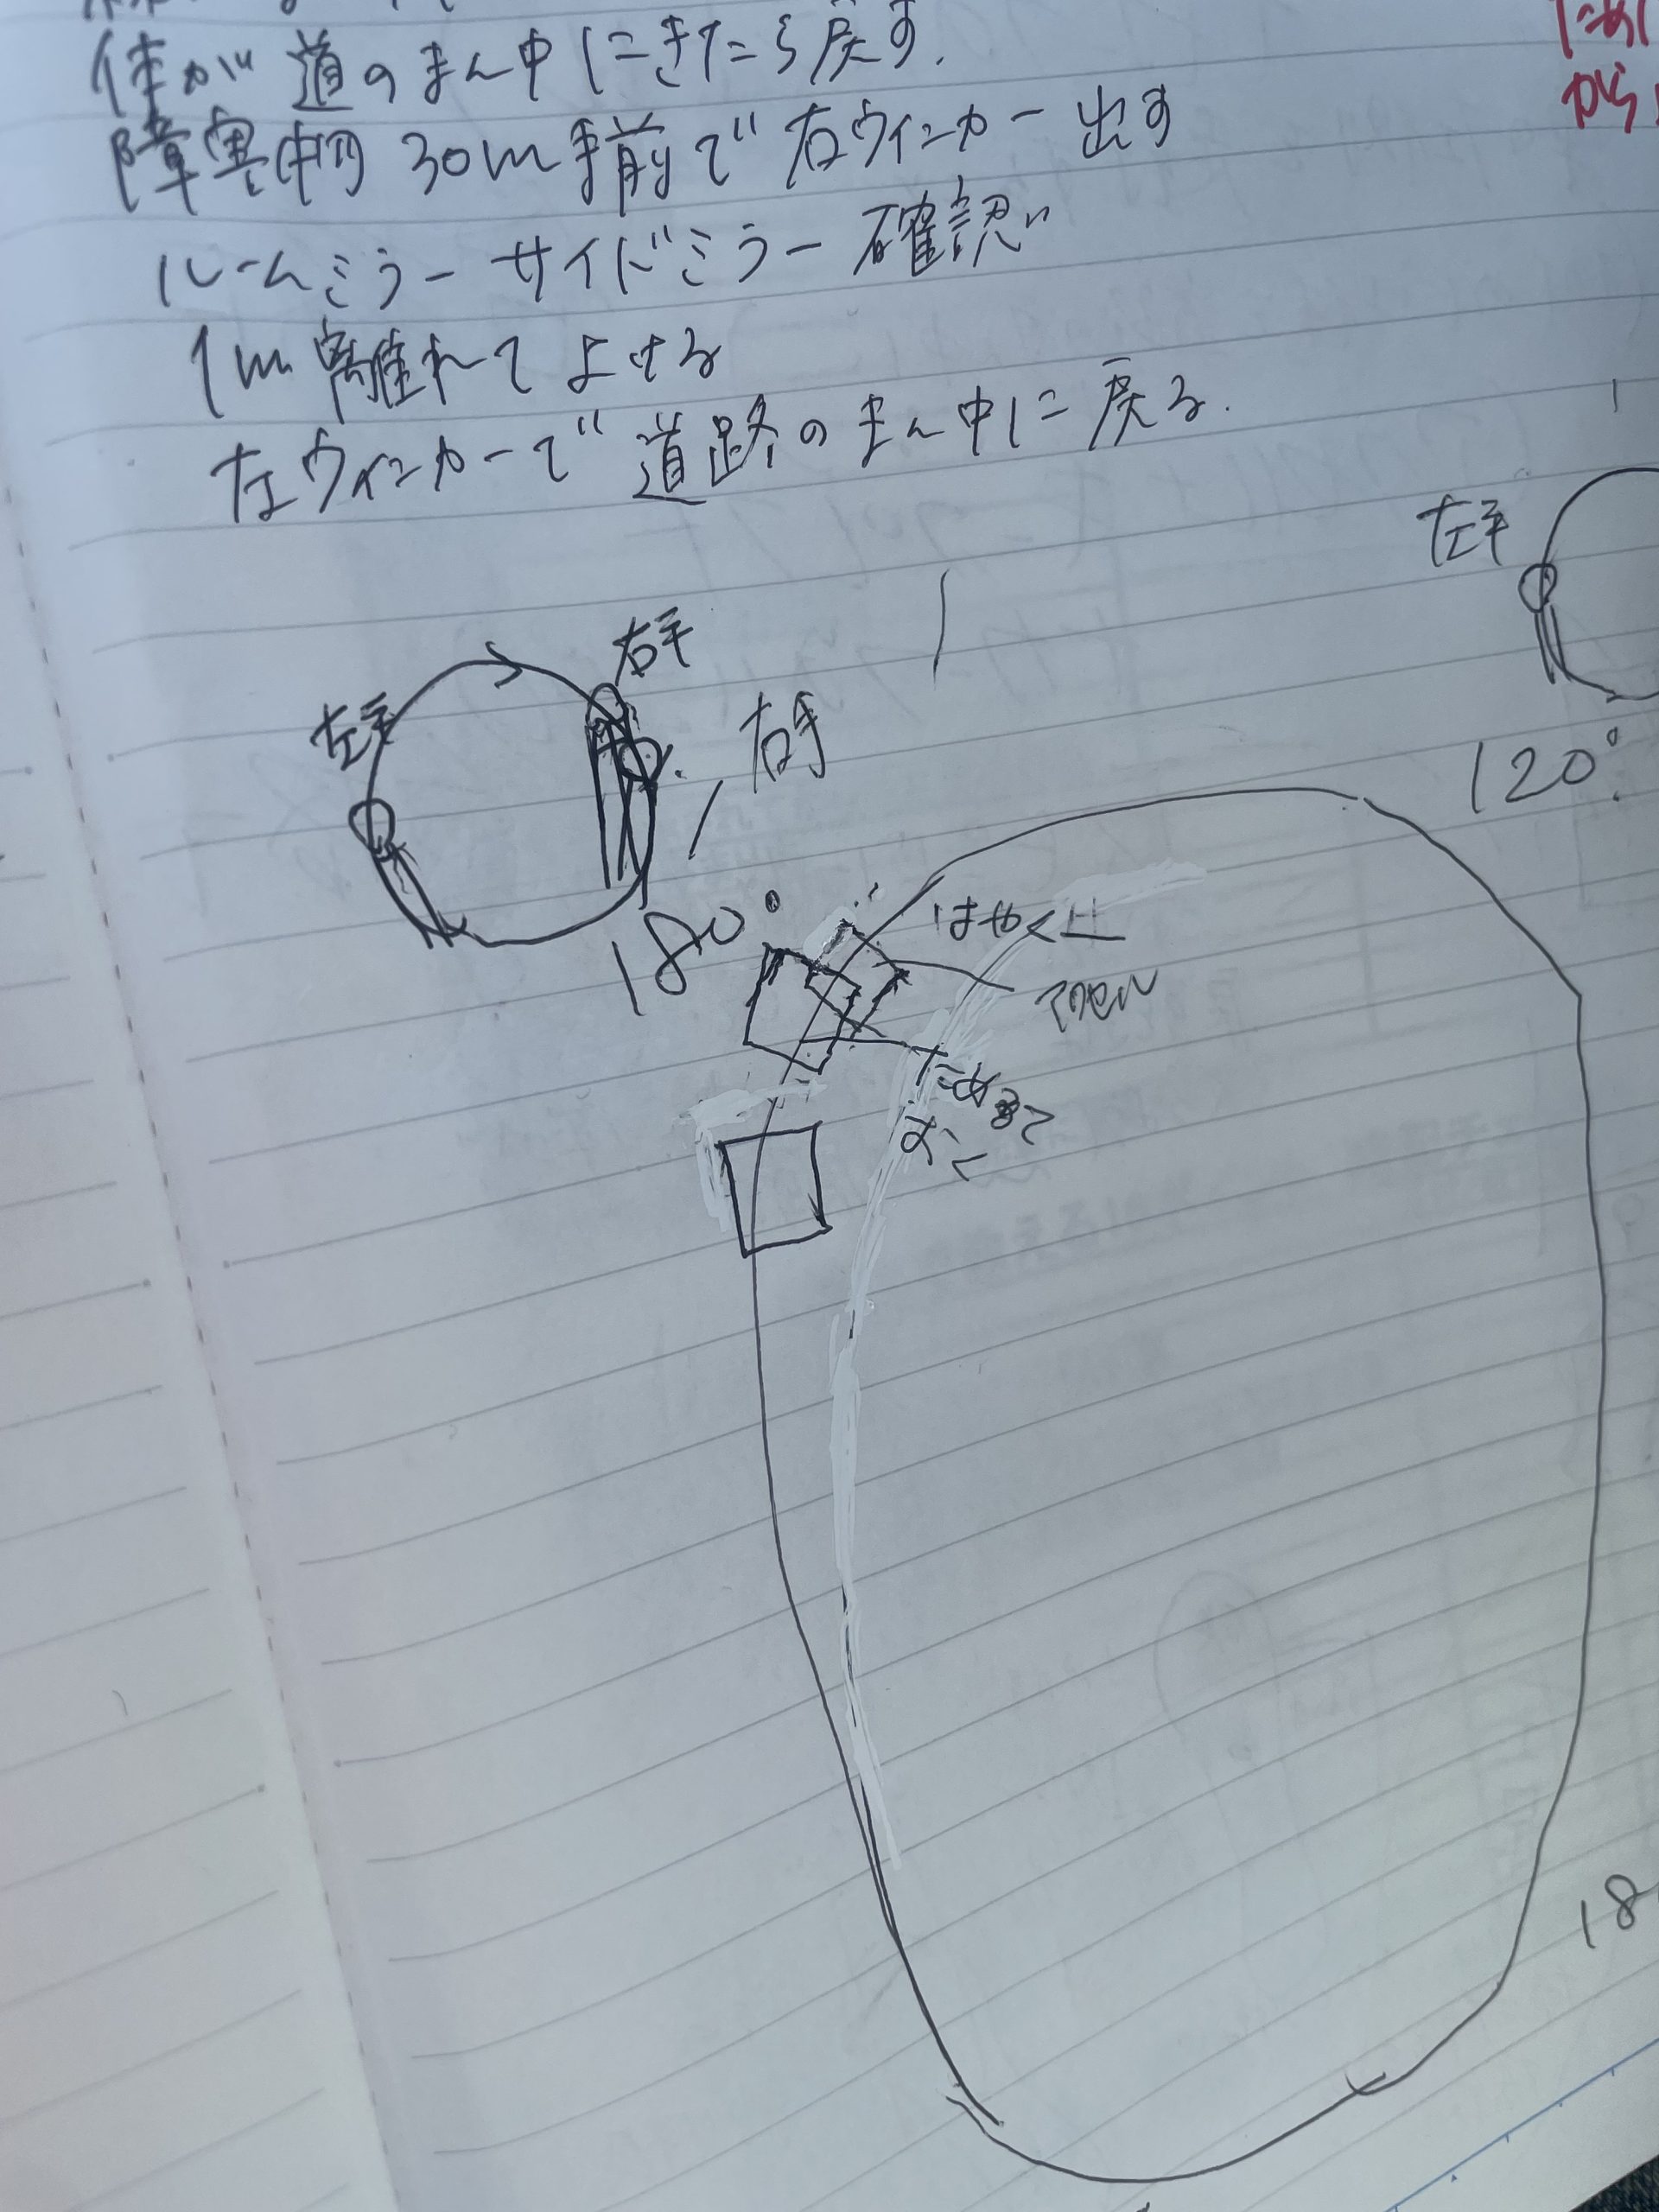 体が道のまん中にきたら戻す.
障害物 30m手前で右ウィンカー出す
ルームミラーサイドミラー確認
1m離れてよせる
左ウィンカーで道路のまん中に戻る.
左手
右手
左手
右手
120°
180°
はやく
アクセル
おく
18
から